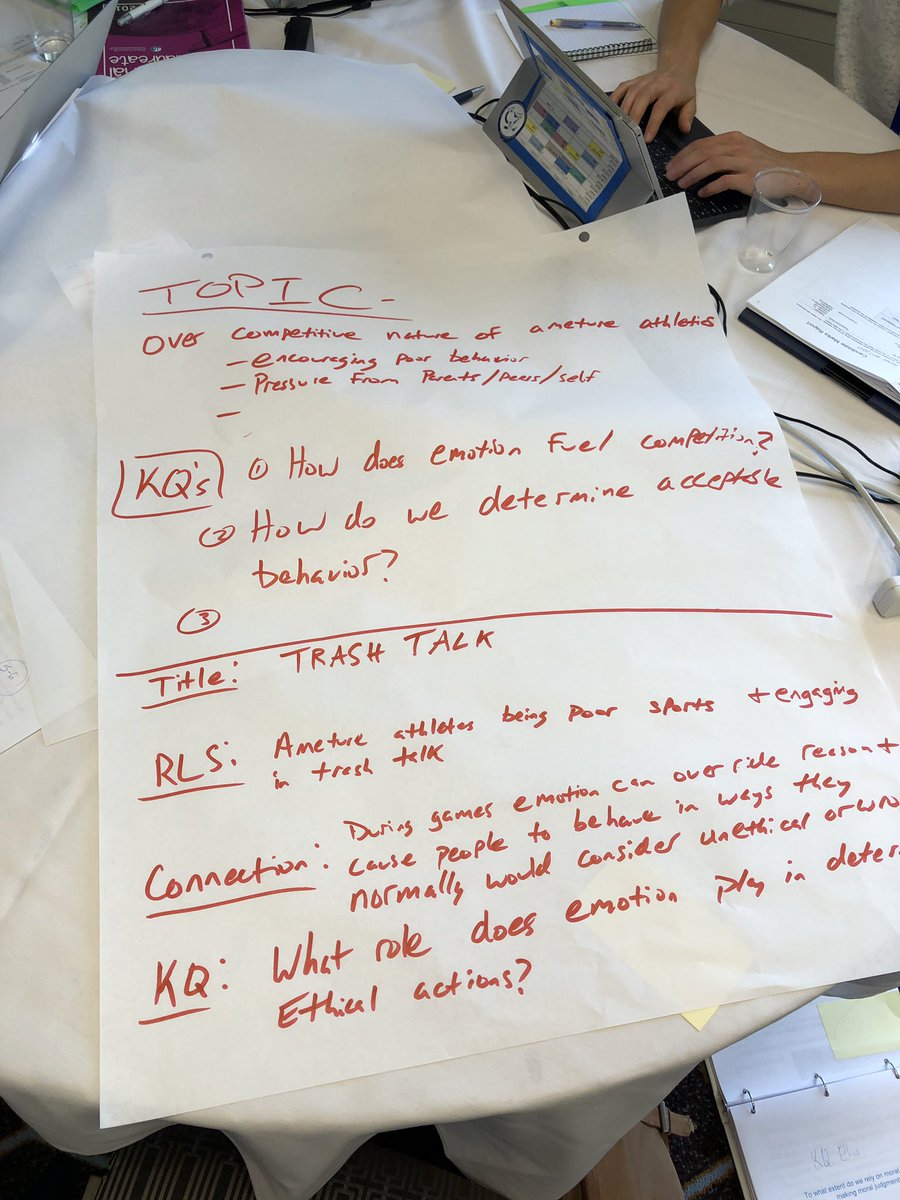 TOPIC-
Over competitive nature of ameture athletics
- encouraging poor behavior
- Pressure From Parents/peers/self
-
KQ's ① How does emotion Fuel competition?
② How do we determine acceptable
behavior?
③
Title: TRASH TALK
RLS: Ameture athletes being poor sports + engaging
in trash talk
Connection: During games emotion can over ride reason +
cause people to behave in ways they
normally would consider unethical or wro
KQ: What role does emotion play in deter
Ethical actions?
Candidate Marks Report
5-6
KQ
To what extent do we rely on moral
making moral judgment